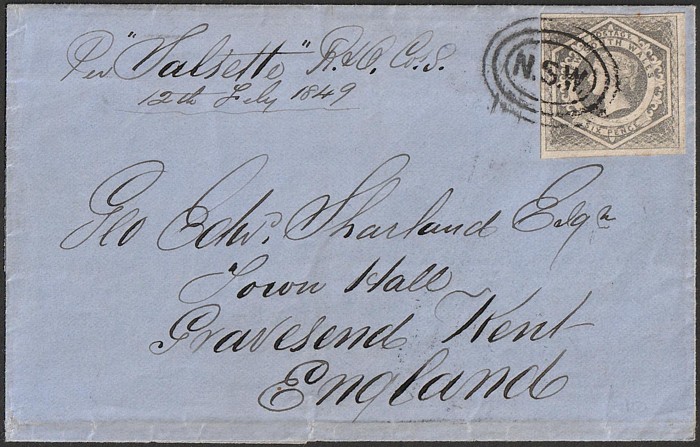 Per "Salsette" P. & O. Co. S.
12th July 1849
N.S.W
POSTAGE
SIX PENCE
Geo Edwd. Sharland Esqr
Town Hall
Gravesend Kent
England